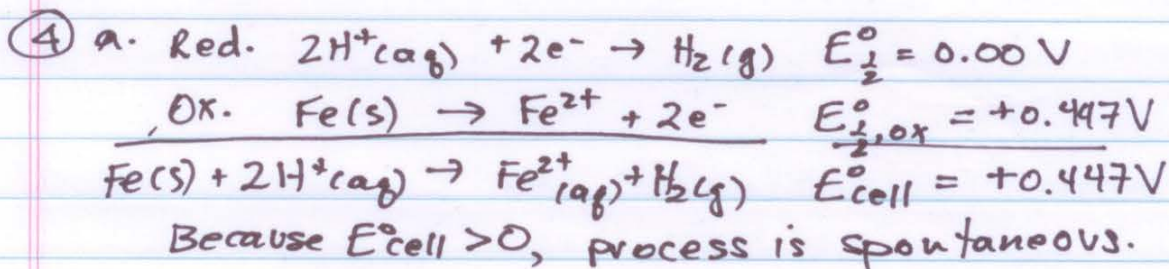 ④ a. Red. 2H⁺(aq) + 2e⁻ → H₂(g) E°½ = 0.00 V
Ox. Fe(s) → Fe²⁺ + 2e⁻ E°½,ox = +0.447V
Fe(s) + 2H⁺(aq) → Fe²⁺(aq) + H₂(g) E°cell = +0.447V
Because E°cell >0, process is spontaneous.